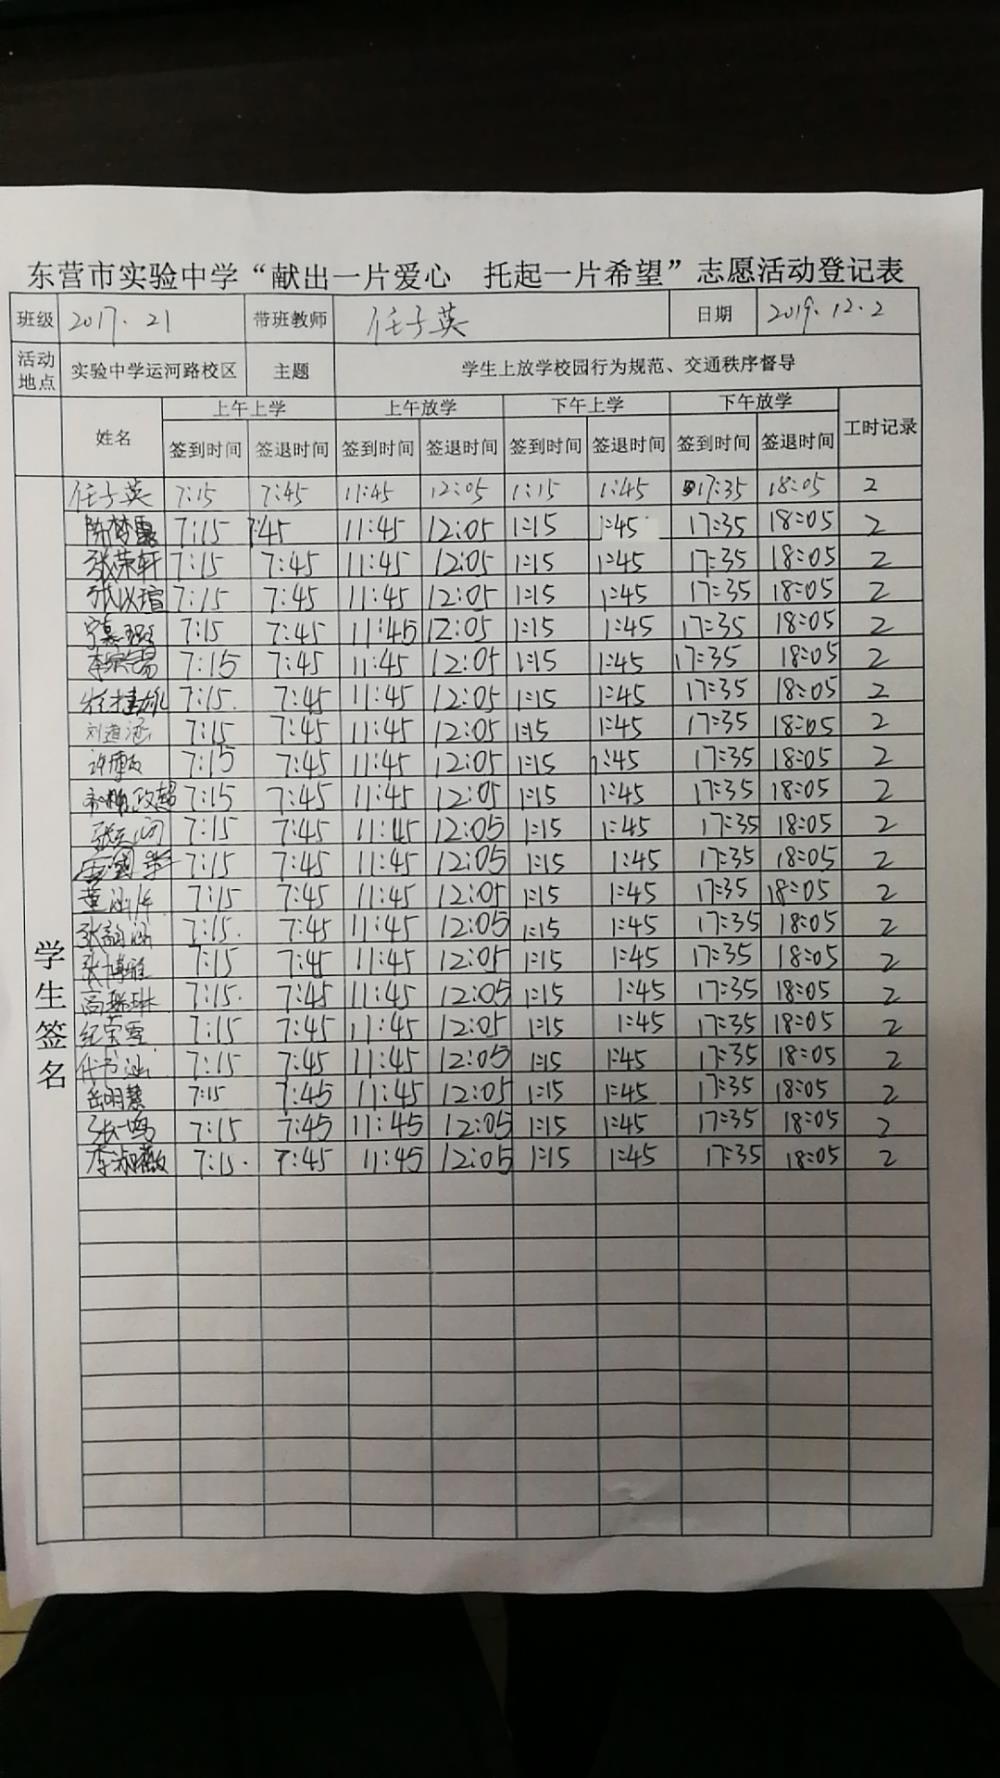 东营市实验中学“献出一片爱心 托起一片希望”志愿活动登记表
班级 2017.21 带班教师 任子英 日期 2019.12.2
活动地点 实验中学运河路校区 主题 学生上放学校园行为规范、交通秩序督导
姓名 上午上学 上午放学 下午上学 下午放学 工时记录
签到时间 签退时间 签到时间 签退时间 签到时间 签退时间 签到时间 签退时间
学生签名
任子英 7:15 7:45 11:45 12:05 1:15 1:45 17:35 18:05 2
陈梦露 7:15 7:45 11:45 12:05 1:15 1:45 17:35 18:05 2
张荣轩 7:15 7:45 11:45 12:05 1:15 1:45 17:35 18:05 2
张以瑄 7:15 7:45 11:45 12:05 1:15 1:45 17:35 18:05 2
7:15 7:45 11:45 12:05 1:15 1:45 17:35 18:05 2
7:15 7:45 11:45 12:05 1:15 1:45 17:35 18:05 2
7:15 7:45 11:45 12:05 1:15 1:45 17:35 18:05 2
刘道涵 7:15 7:45 11:45 12:05 1:15 1:45 17:35 18:05 2
7:15 7:45 11:45 12:05 1:15 1:45 17:35 18:05 2
7:15 7:45 11:45 12:05 1:15 1:45 17:35 18:05 2
7:15 7:45 11:45 12:05 1:15 1:45 17:35 18:05 2
7:15 7:45 11:45 12:05 1:15 1:45 17:35 18:05 2
7:15 7:45 11:45 12:05 1:15 1:45 17:35 18:05 2
张韵涵 7:15 7:45 11:45 12:05 1:15 1:45 17:35 18:05 2
张博雅 7:15 7:45 11:45 12:05 1:15 1:45 17:35 18:05 2
高琳琳 7:15 7:45 11:45 12:05 1:15 1:45 17:35 18:05 2
纪宝雪 7:15 7:45 11:45 12:05 1:15 1:45 17:35 18:05 2
代书涵 7:15 7:45 11:45 12:05 1:15 1:45 17:35 18:05 2
岳明慧 7:15 7:45 11:45 12:05 1:15 1:45 17:35 18:05 2
张一鸣 7:15 7:45 11:45 12:05 1:15 1:45 17:35 18:05 2
李淑薇 7:15 7:45 11:45 12:05 1:15 1:45 17:35 18:05 2